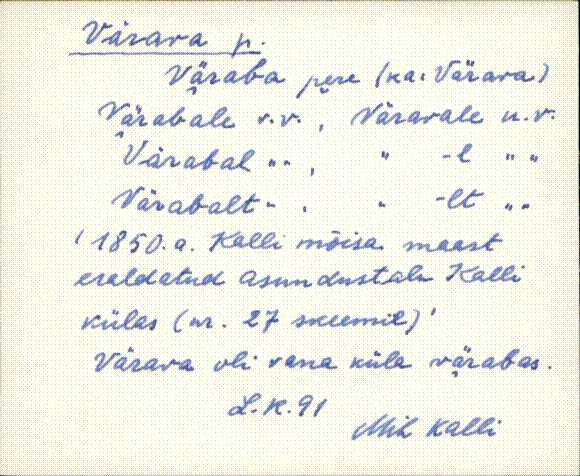 Värava p.
Väraba pere (ka: Värava)
Värabale v.v., Väravale u.v.
Värabal " ", " -l " "
Värabalt ", " -lt " "
' 1850. a. Kalli mõisa maast
eraldatud asundustalu Kalli
külas (nr. 27 skeemil) '
Värava oli vana küla värabas.
L.K. 91
Mih Kalli